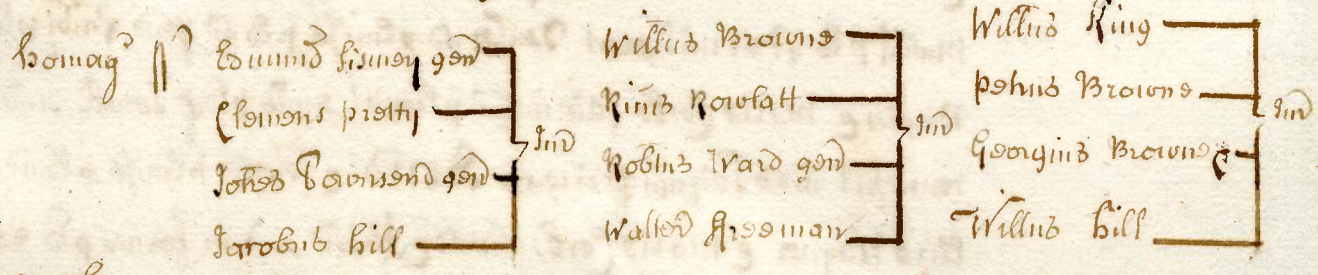 homag
Edmund gen
Clemens Pretty
Johes Townsend gen
Jacobus Hill
Jur
Willus Browne
Ricus Rowlatt
Robtus Ward gen
Walter Freeman
Jur
Willus King
Petrus Browne
Georgius Browne
Willus Hill
Jur